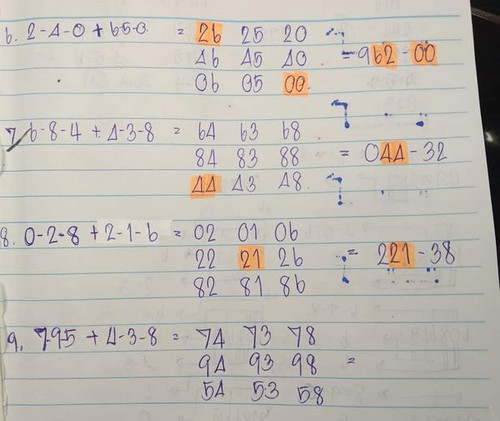 6. 2-4-0 + 650 = 26 25 20
46 45 40 = 962-00
06 05 00
7. 6-8-4 + 4-3-8 = 64 63 68
84 83 88 = 044-32
44 43 48
8. 0-2-8 + 2-1-6 = 02 01 06
22 21 26 = 221-38
82 81 86
9. 795 + 4-3-8 = 74 73 78
94 93 98 =
54 53 58